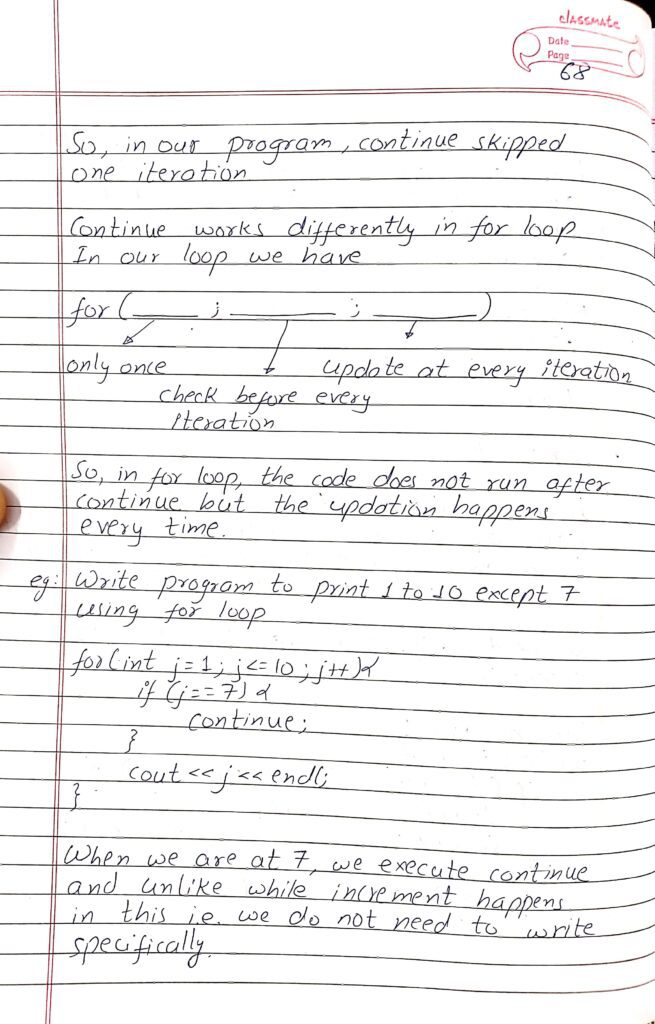 classmate
Date
Page
68
So, in our program, continue skipped
one iteration
Continue works differently in for loop
In our loop we have
for ( ____ ; ____ ; ____ )
only once
update at every iteration
check before every
iteration
So, in for loop, the code does not run after
continue but the updation happens
every time.
eg: Write program to print 1 to 10 except 7
using for loop
for(int j=1; j<=10; j++){
if (j==7) {
continue;
}
cout << j << endl;
}
When we are at 7, we execute continue
and unlike while increment happens
in this i.e. we do not need to write
specifically.